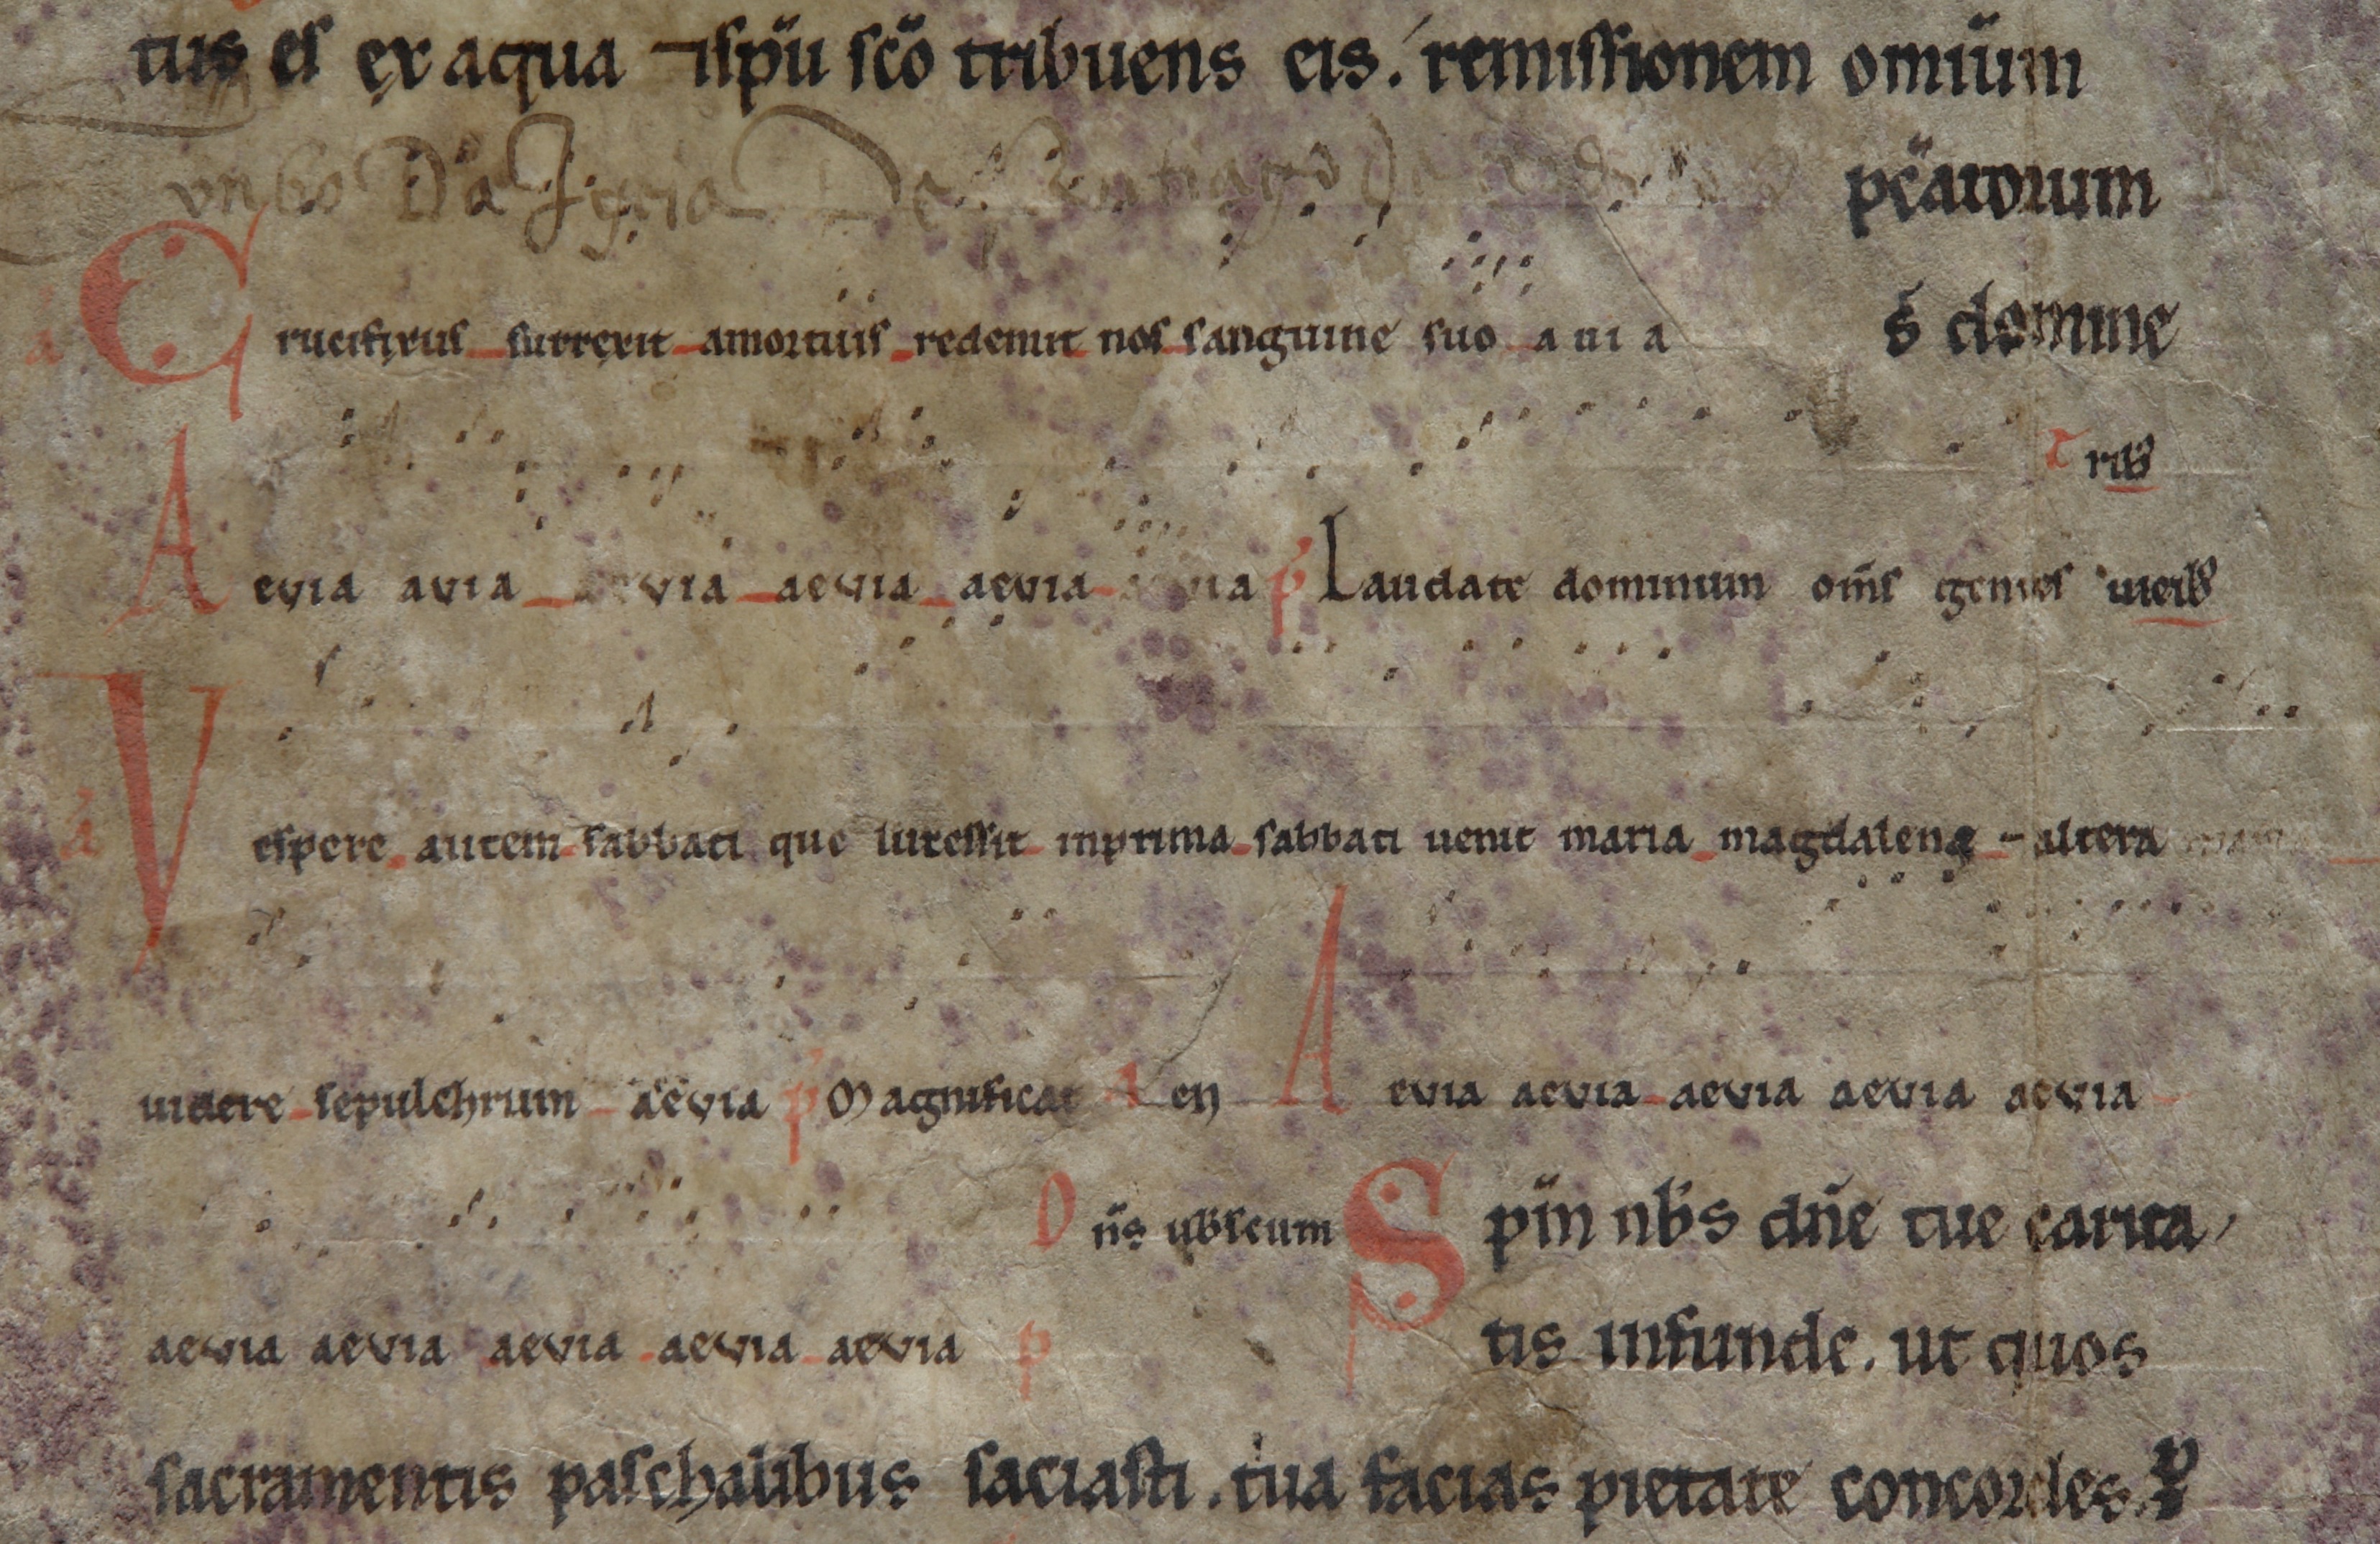 tus es ex aqua ⁊ispũ scõ tribuens eis. remissionem omiũm
pc̃atorum
Crucifixus surrexit amortuis redemit nos sanguine suo a ui a s̃ domine
Trib9
Aeuia auia aeuia aeuia p̃ Laudate dominum om̃s gentes
á Vespere autem sabbati que lucessit inprima sabbati uenit maria magdalene ⁊ altera
uidere sepulchrum aeuia p̃ Magnificat Aeuia aeuia aeuia aeuia aeuia
Dñs ubscum Spm̃ nb̃s dñe tue carita
aeuia aeuia aeuia aeuia aeuia p tis infunde. ut quos
sacramentis paschalibus saciasti. tua facias pietate concordes. p